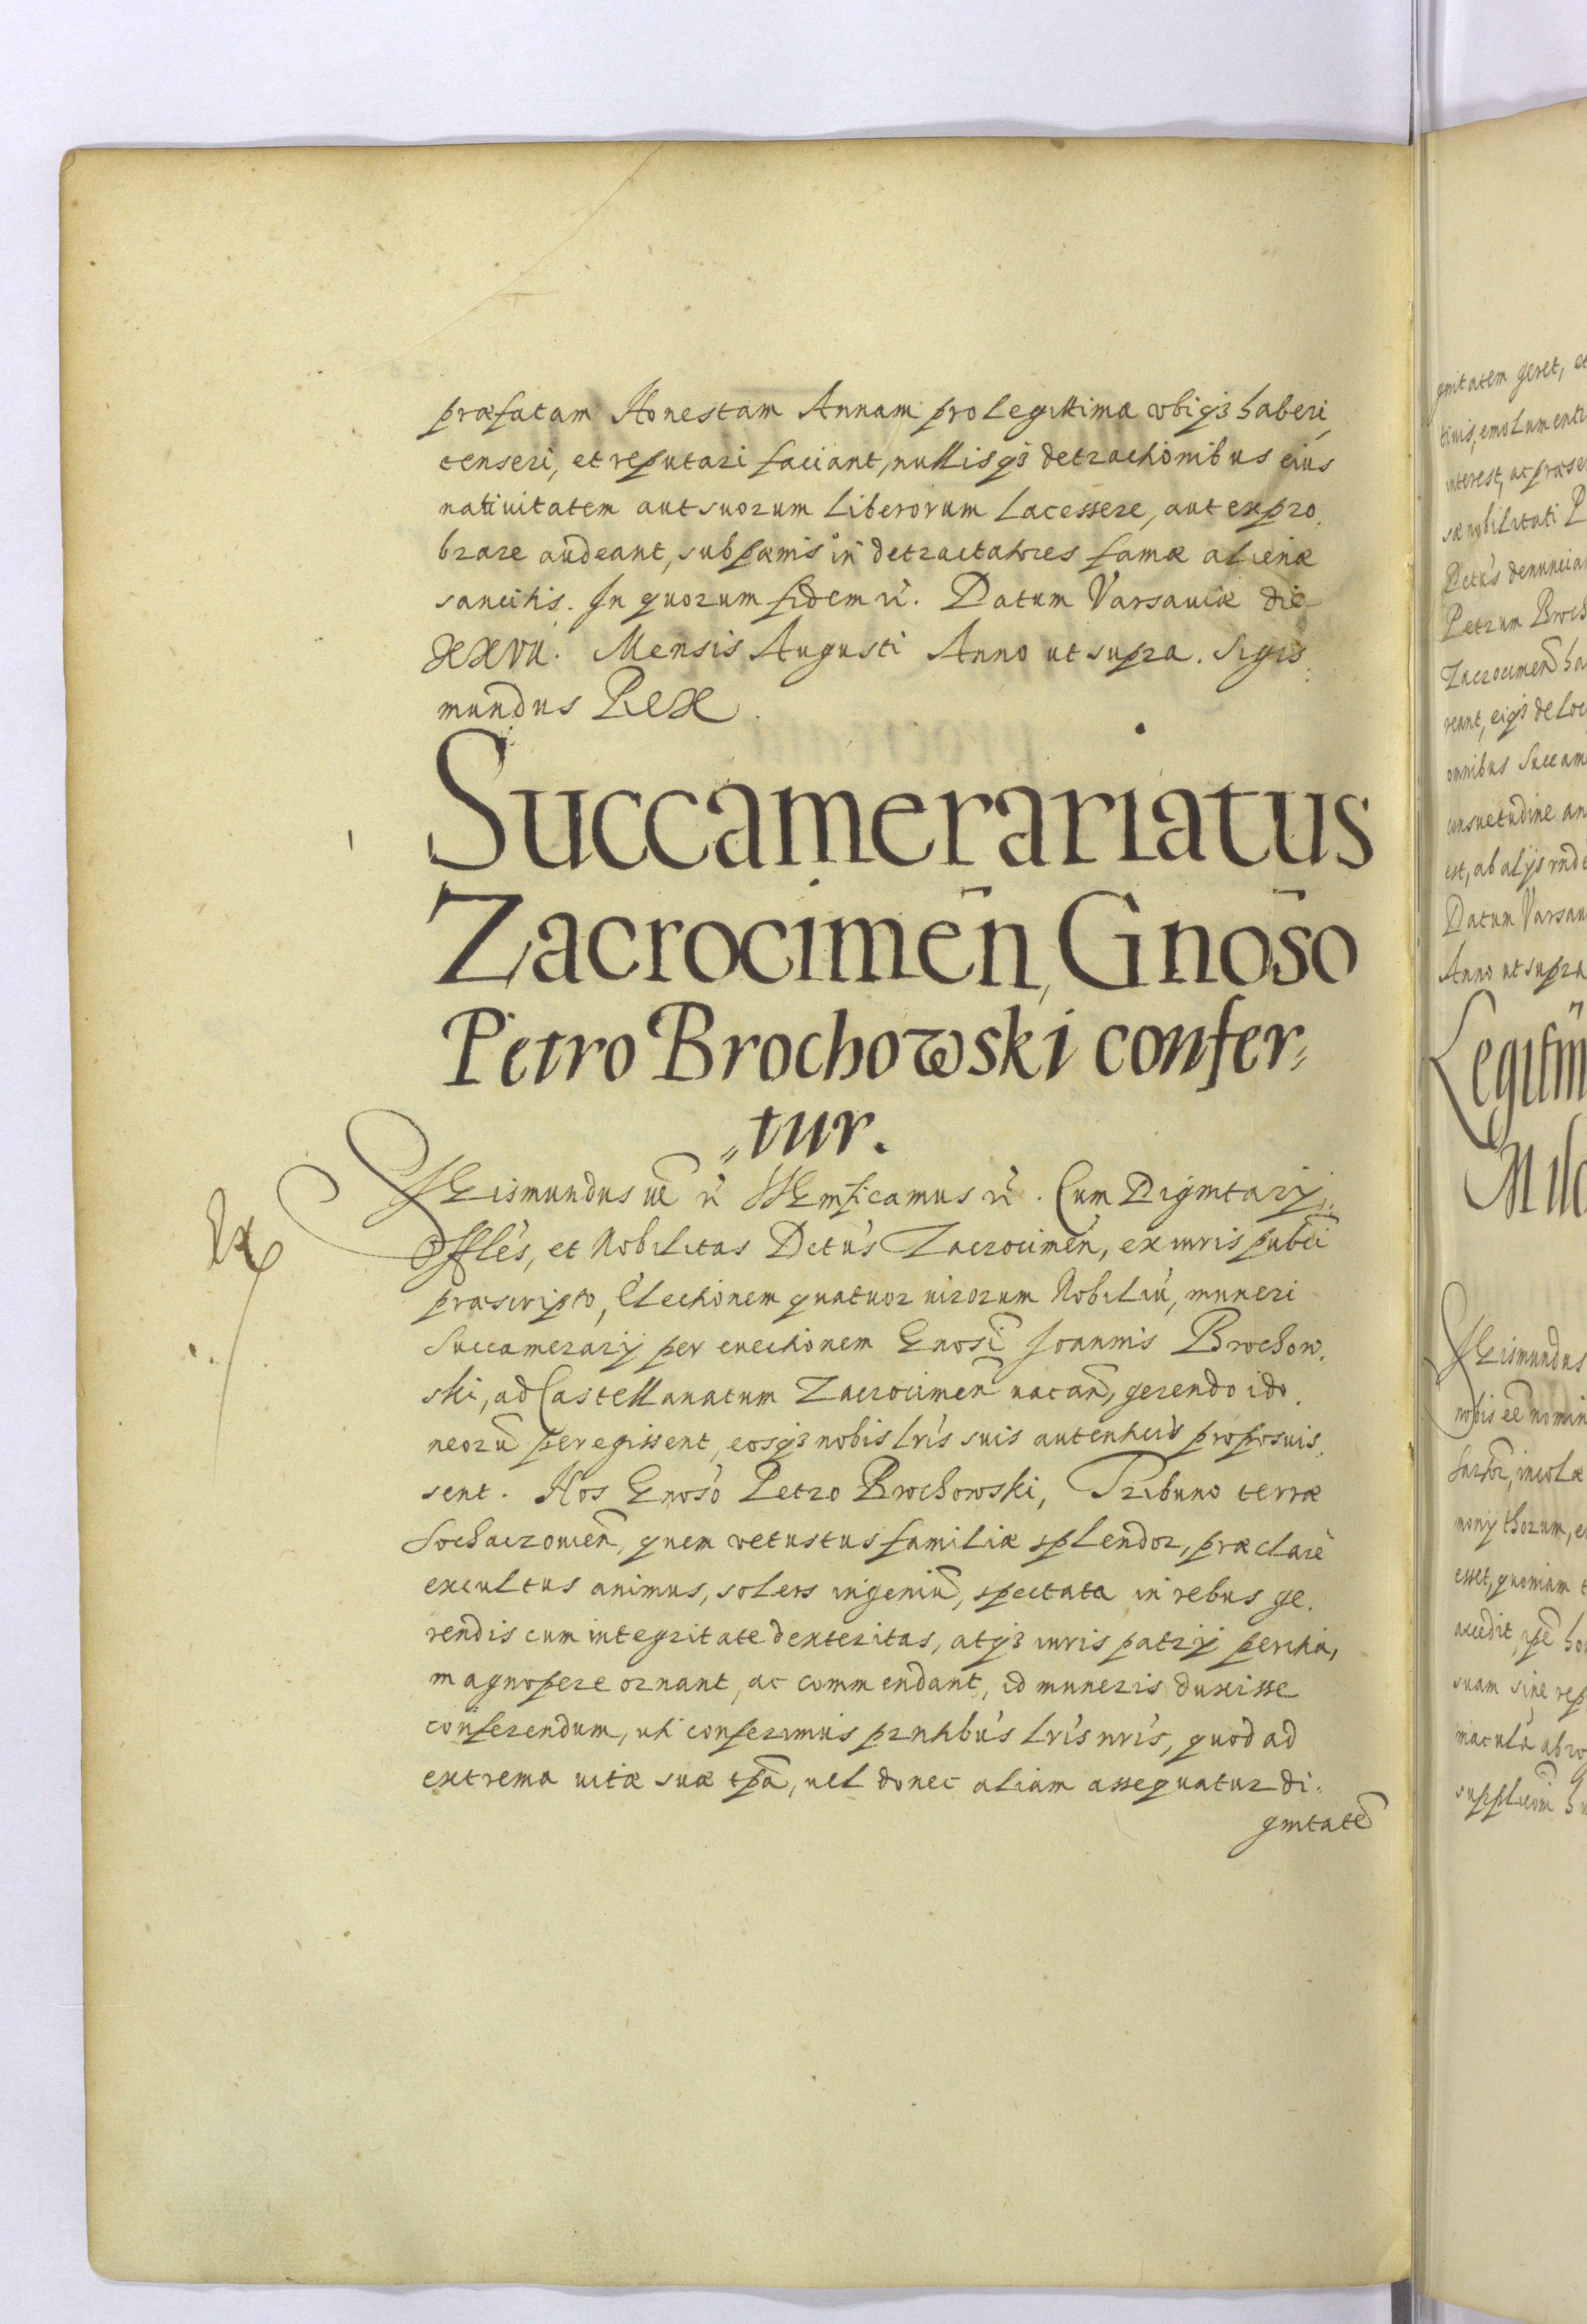 præfatam Honestam Annam pro legittima vbiq3 haberi,
censeri, et reputari faciant, nullisq3 detractionibus eius
natiuitatem aut suorum liberorum lacessere, aut expro
brare audeant, sub pœnis in detractatores famæ alienæ
sancitis. In quorum fidem rė. Datum Varsauiæ die
XXVII. Mensis Augusti Anno ut supra. Sigis
mundus Rex.
Succamerariatus
Zacrocimeñ, Gnōso
Petro Brochowski confer=
„tur.
SIGismundus III rė SIGnificamus rė. Cum Dignitarij,
Offlės, et Nobilitas Dctus Zacrocimeñ, ex iuris publici
præscripto, Electionem quatuor uirorum Nobiliū, muneri
Succamerarij per euectionem Gnosi Joannis Brochow
ski, ad Castellanatum Zacrocimeñ uacañ, gerendo ido
neorū peregissent, eosq3 nobis lris suis autenticis proposuis
sent. Nos Gnoso Petro Brochowski, Tribuno terræ
Sochaczouieñ, quem vetustus familiæ splendor, præclarè
excultus animus, solers ingeniū, spectata in rebus ge
rendis cum integritate dexteritas, atq3 iuris patrij peritia,
magnopere ornant, ac commendant, id muneris duxisse
conferendum, uti conferimus prntibus lris nris, quod ad
extrema uitæ suæ tpā, uel donec aliam assequatur di
gnitatē
gnitatem geret, et
interest, ac præse
sæ nobilitati P
Dctus denuncia
Petrum Broch
Zacrocimeñ ha
reant, eiq3 de loc
omnibus Succam
consuetudine an
est, ab alijs
Datum Varsau
Anno ut supra
Legitim
Mila
SIGismundus
nobis eē nomin
incolæ
esset, quoniam
accedit,
suam sine rep